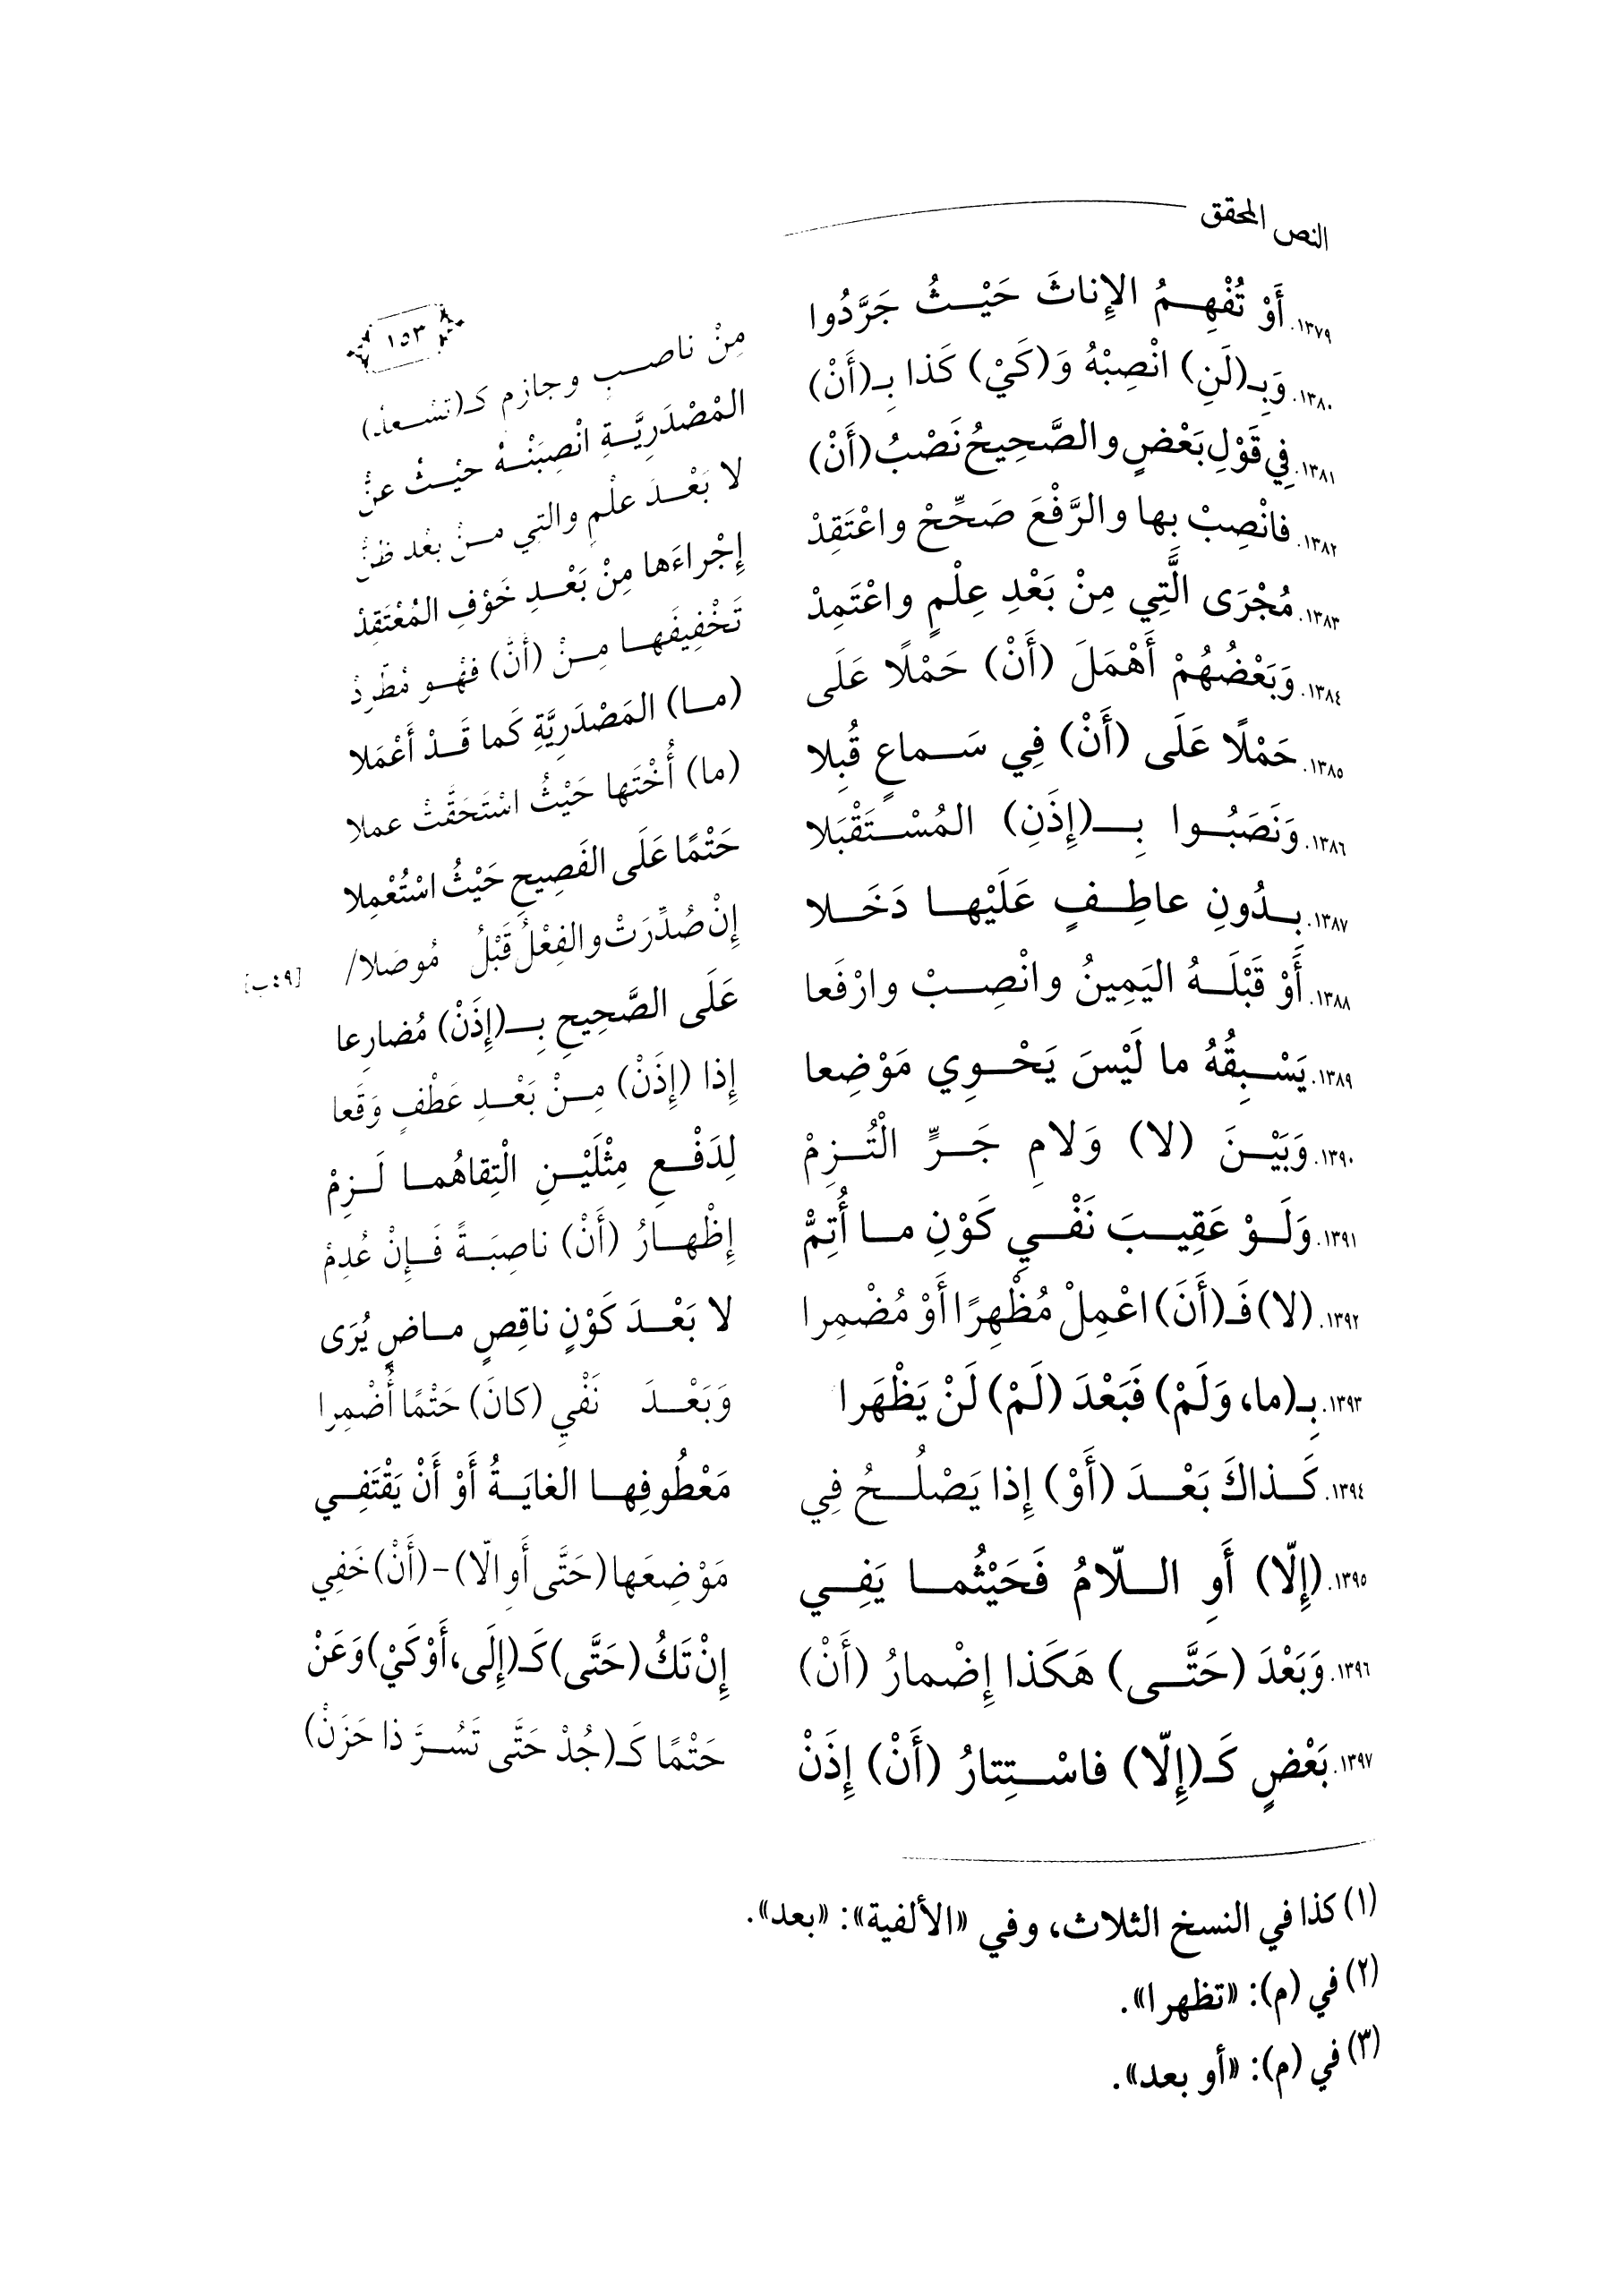 النص المحقق
١٥٣
١٣٧٩. أَوْ تُفْهِمُ الإِناثَ حَيْثُ جَرَّدُوا مِنْ ناصبٍ وجازمٍ كـ(تسعد)
١٣٨٠. وَبِـ(لَنِ) انْصِبْهُ وَ(كَيْ) كَذا بِـ(أَنْ) المْصْدَرِيَّةِ انْصِبَنْهُ حيْثُ عنّْ
١٣٨١. فِي قَوْلِ بَعْضٍ والصَّحِيحُ نَصْبُ (أَنْ) لا بَعْدَ علْمٍ والتِي منْ بعْد ظنّْ
١٣٨٢. فانْصِبْ بِها والرَّفْعَ صَحِّحْ واعْتَقِدْ إِجْراءَها مِنْ بَعْدِ خَوْفِ المُعْتَقِدْ
١٣٨٣. مُجْرَى الَّتِي مِنْ بَعْدِ عِلْمٍ واعْتَمِدْ تَخْفِيفَها مِنْ (أَنَّ) فهْو مُطّردْ
١٣٨٤. وَبَعْضُهُمْ أَهْمَلَ (أَنْ) حَمْلًا عَلَى (ما) المَصْدَرِيَّةِ كَما قَدْ أَعْمَلا
١٣٨٥. حَمْلًا عَلَى (أَنْ) فِي سَماعٍ قُبِلا (ما) أُخْتَها حَيْثُ اسْتَحَقَّتْ عملا
١٣٨٦. وَنَصَبُوا بِـ(إِذَنِ) المُسْتَقْبَلا حَتْمًا عَلَى الفَصِيحِ حَيْثُ اسْتُعْمِلا
١٣٨٧. بِدُونِ عاطِفٍ عَلَيْها دَخَلا إِنْ صُدِّرَتْ والفِعْلُ قَبْلُ مُوصَلا/ [٤٩ب]
١٣٨٨. أَوْ قَبْلَهُ اليَمِينُ وانْصِبْ وارْفَعا عَلَى الصَّحِيحِ بِـ(إِذَنْ) مُضارِعا
١٣٨٩. يَسْبِقُهُ ما لَيْسَ يَحْوِي مَوْضِعا إِذا (إِذَنْ) مِنْ بَعْدِ عَطْفٍ وَقَعا
١٣٩٠. وَبَيْنَ (لا) وَلامِ جَرٍّ الْتُزِمْ لِدَفْعِ مِثْلَيْنِ الْتِقاهُما لَزِمْ
١٣٩١. وَلَوْ عَقِيبَ نَفْيِ كَوْنِ ما أُتِمّْ إِظْهارُ (أَنْ) ناصِبَةً فَإِنْ عُدِمْ
١٣٩٢. (لا) فَـ(أَنَ) اعْمِلْ مُظْهِرًا أَوْ مُضْمِرا لا بَعْدَ كَوْنٍ ناقِصٍ ماضٍ يُرَى
١٣٩٣. بِـ(ما، وَلَمْ) فَبَعْدَ (لَمْ) لَنْ يَظْهَرا وَبَعْدَ نَفْيِ (كانَ) حَتْمًا أُضْمِرا
١٣٩٤. كَذاكَ بَعْدَ (أَوْ) إِذا يَصْلُحُ فِي مَعْطُوفِها الغايَةُ أَوْ أَنْ يَقْتَفِي
١٣٩٥. (إِلّا) أَوِ اللّامُ فَحَيْثُما يَفِي مَوْضِعَها (حَتَّى أَوِ الّا) -(أَنْ) خَفِي
١٣٩٦. وَبَعْدَ (حَتَّى) هَكَذا إِضْمارُ (أَنْ) إِنْ تَكُ (حَتَّى) كَـ(إِلَى، أَوْ كَيْ) وَعَنْ
١٣٩٧. بَعْضٍ كَـ(إِلّا) فاسْتِتارُ (أَنْ) إِذَنْ حَتْمًا كَـ(جُدْ حَتَّى تَسُرَّ ذا حَزَنْ)
(١) كذا في النسخ الثلاث، وفي «الألفية»: «بعد».
(٢) في (م): «تظهرا».
(٣) في (م): «أو بعد».